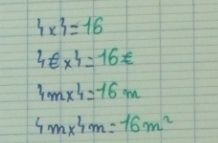 4 x 4 = 16
4€ x 4 = 16€
4m x 4 = 16 m
4m x 4m = 16m²